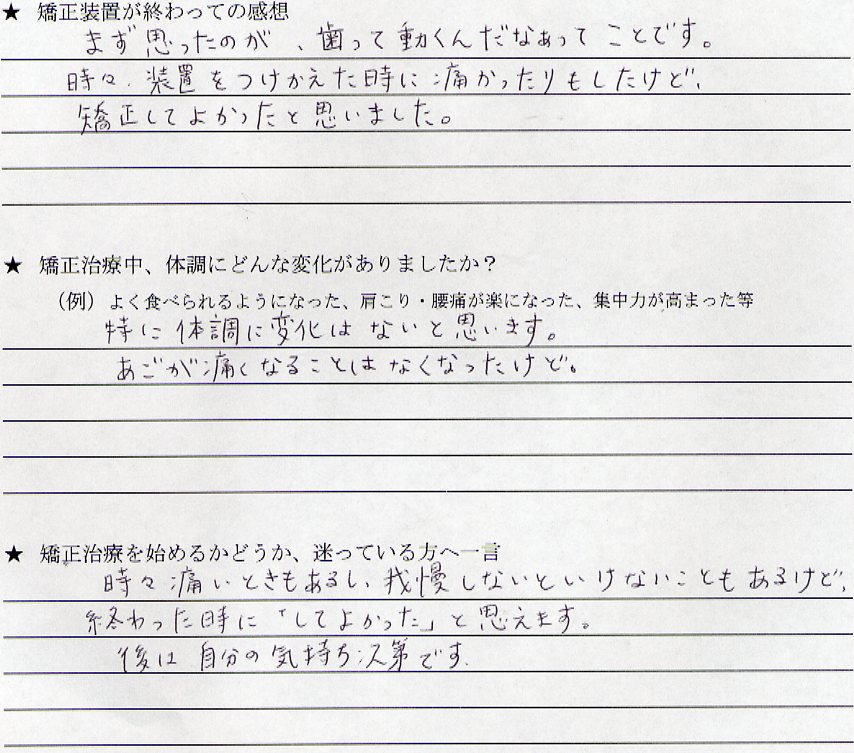 ★ 矯正装置が終わっての感想
まず思ったのが、歯って動くんだなぁってことです。
時々、装置をつけかえた時に痛かったりもしたけど、
矯正してよかったと思いました。
★ 矯正治療中、体調にどんな変化がありましたか？
（例）よく食べられるようになった、肩こり・腰痛が楽になった、集中力が高まった等
特に体調に変化はないと思います。
あごが痛くなることはなくなったけど。
★ 矯正治療を始めるかどうか、迷っている方へ一言
時々痛いときもあるし、我慢しないといけないこともあるけど、
終わった時に「してよかった」と思えます。
後は自分の気持ち次第です.